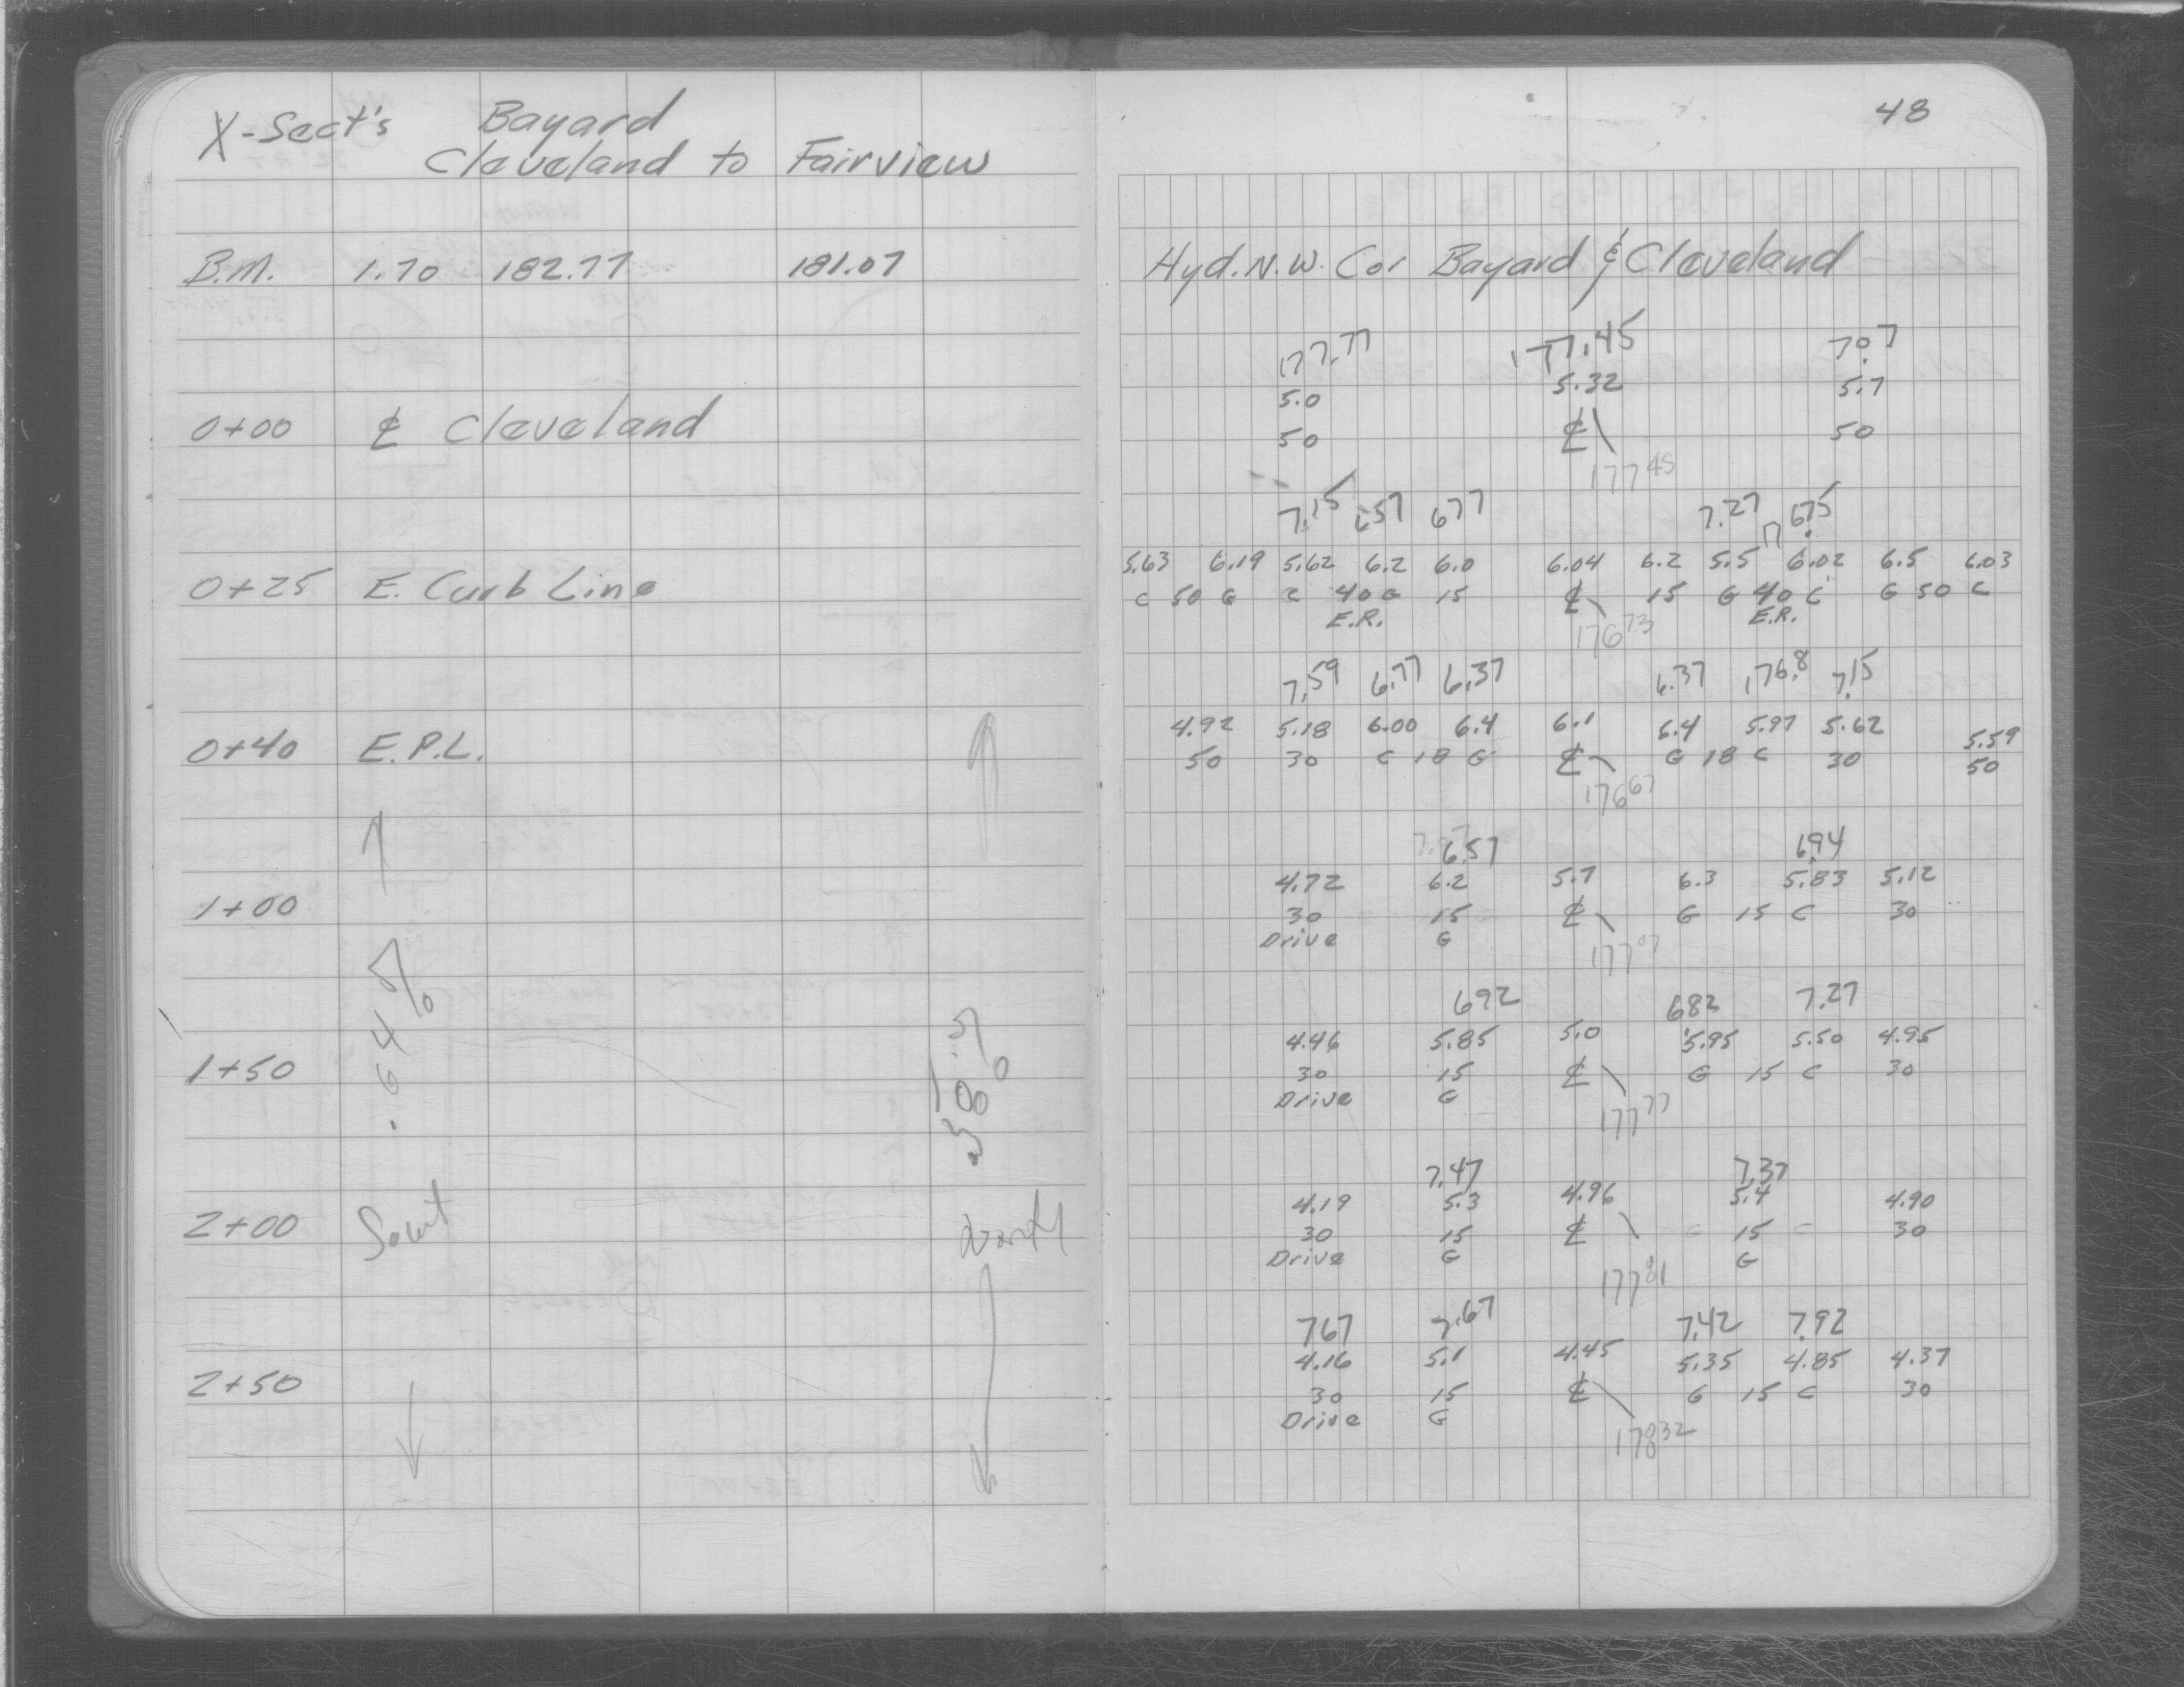 X-Sect's Bayard
Cleveland to Fairview
48
B.M. 1.70 182.77 181.07 Hyd. N.W. Cor Bayard & Cleveland
177.77 177.45 7.07
5.0 5.32 5.7
0+00 ℄ Cleveland 50 ℄ 50
177 45
7.15 657 677 7.27 6.75
5.63 6.19 5.62 6.2 6.0 6.04 6.2 5.5 6.02 6.5 6.03
0+25 E. Curb Line C 50 G C 40 G 15 ℄ 15 G 40 C G 50 C
E.R. E.R.
176 73
7.59 6.77 6.37 6.37 176.8 7.15
4.92 5.18 6.00 6.4 6.1 6.4 5.97 5.62 5.59
0+40 E.P.L. 50 30 C 18 G ℄ G 18 C 30 50
176 67
6.57 6.94
4.72 6.2 5.7 6.3 5.83 5.12
1+00 30 15 ℄ G 15 C 30
Drive G
177 07
692 682 7.27
4.46 5.85 5.0 5.95 5.50 4.95
1+50 30 15 ℄ G 15 C 30
Drive G
177 77
.64%
7.47 7.37
4.19 5.3 4.96 5.4 4.90
2+00 30 15 ℄ 15 30
Drive G G
177 81
767 7.67 7.42 7.92
4.16 5.1 4.45 5.35 4.85 4.37
2+50 30 15 ℄ G 15 C 30
Drive G
178 32